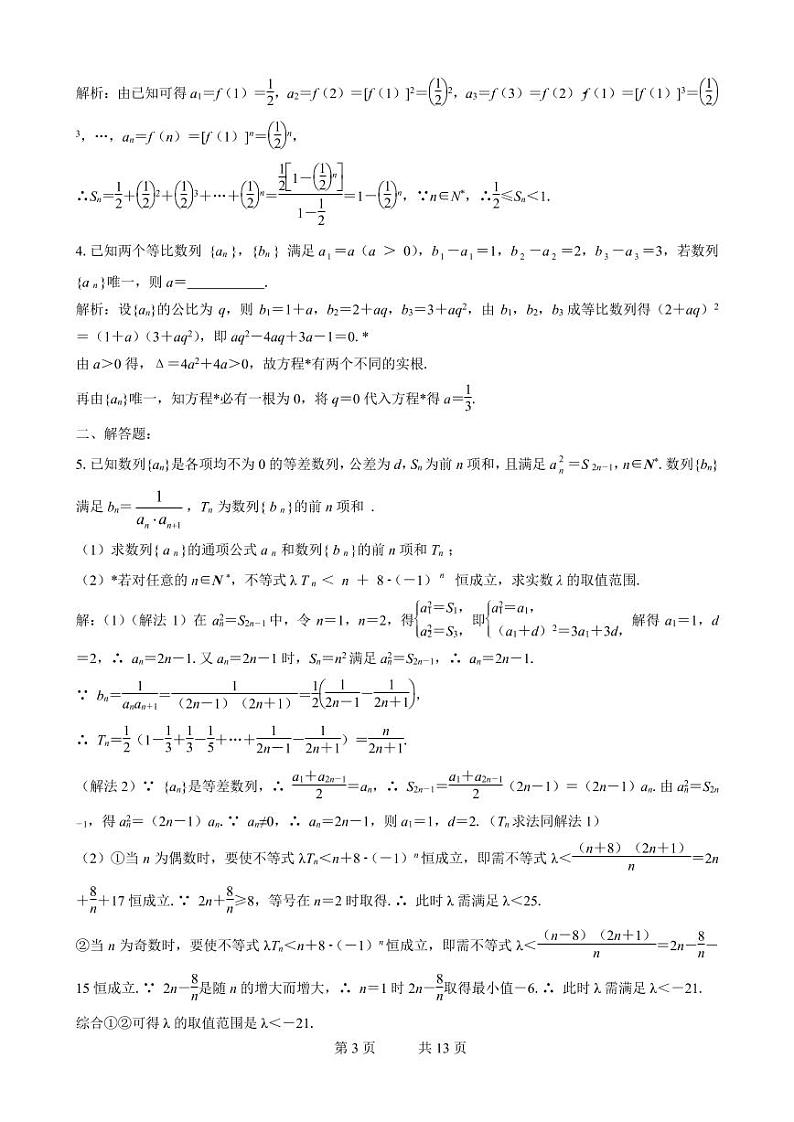 解析：由已知可得 a₁=f（1）=1/2，a₂=f（2）=[f（1）]²=(1/2)²，a₃=f（3）=f（2）·f（1）=[f（1）]³=(1/2)
³，…，aₙ=f（n）=[f（1）]ⁿ=(1/2)ⁿ，
∴Sₙ=1/2+(1/2)²+(1/2)³+…+(1/2)ⁿ=(1/2[1-(1/2)ⁿ])/(1-1/2)=1-(1/2)ⁿ，∵n∈N*，∴1/2≤Sₙ<1.
4. 已知两个等比数列 {aₙ}，{bₙ} 满足 a₁=a（a > 0），b₁-a₁=1，b₂-a₂=2，b₃-a₃=3，若数列
{aₙ}唯一，则 a=__________.
解析：设{aₙ}的公比为 q，则 b₁=1+a，b₂=2+aq，b₃=3+aq²，由 b₁，b₂，b₃ 成等比数列得（2+aq）²
=（1+a）（3+aq²），即 aq²-4aq+3a-1=0. *
由 a>0 得，Δ=4a²+4a>0，故方程*有两个不同的实根.
再由{aₙ}唯一，知方程*必有一根为 0，将 q=0 代入方程*得 a=1/3.
二、解答题：
5. 已知数列{aₙ}是各项均不为 0 的等差数列，公差为 d，Sₙ 为前 n 项和，且满足 aₙ²=S₂ₙ₋₁，n∈N*. 数列{bₙ}
满足 bₙ=1/(aₙ·aₙ₊₁)，Tₙ 为数列{bₙ}的前 n 项和 .
（1）求数列{aₙ}的通项公式 aₙ 和数列{bₙ}的前 n 项和 Tₙ；
（2）*若对任意的 n∈N*，不等式 λTₙ < n + 8·(-1)ⁿ 恒成立，求实数 λ 的取值范围.
解：（1）（解法 1）在 aₙ²=S₂ₙ₋₁ 中，令 n=1，n=2，得{a₁²=S₁，a₂²=S₃，即{a₁²=a₁，（a₁+d）²=3a₁+3d，解得 a₁=1，d
=2，∴ aₙ=2n-1. 又 aₙ=2n-1 时，Sₙ=n² 满足 aₙ²=S₂ₙ₋₁，∴ aₙ=2n-1.
∵ bₙ=1/(aₙaₙ₊₁)=1/(（2n-1）（2n+1）)=1/2(1/(2n-1)-1/(2n+1))，
∴ Tₙ=1/2（1-1/3+1/3-1/5+…+1/(2n-1)-1/(2n+1)）=n/(2n+1).
（解法 2）∵ {aₙ}是等差数列，∴ (a₁+a₂ₙ₋₁)/2=aₙ，∴ S₂ₙ₋₁=(a₁+a₂ₙ₋₁)/2（2n-1）=（2n-1）aₙ. 由 aₙ²=S₂ₙ
₋₁，得 aₙ²=（2n-1）aₙ. ∵ aₙ≠0，∴ aₙ=2n-1，则 a₁=1，d=2.（Tₙ 求法同解法 1）
（2）①当 n 为偶数时，要使不等式 λTₙ<n+8·(-1)ⁿ 恒成立，即需不等式 λ<(（n+8）（2n+1）)/n=2n
+8/n+17 恒成立. ∵ 2n+8/n≥8，等号在 n=2 时取得. ∴ 此时 λ 需满足 λ<25.
②当 n 为奇数时，要使不等式 λTₙ<n+8·(-1)ⁿ 恒成立，即需不等式 λ<(（n-8）（2n+1）)/n=2n-8/n-
15 恒成立. ∵ 2n-8/n是随 n 的增大而增大，∴ n=1 时 2n-8/n取得最小值-6. ∴ 此时 λ 需满足 λ<-21.
综合①②可得 λ 的取值范围是 λ<-21.
第 3 页 共 13 页